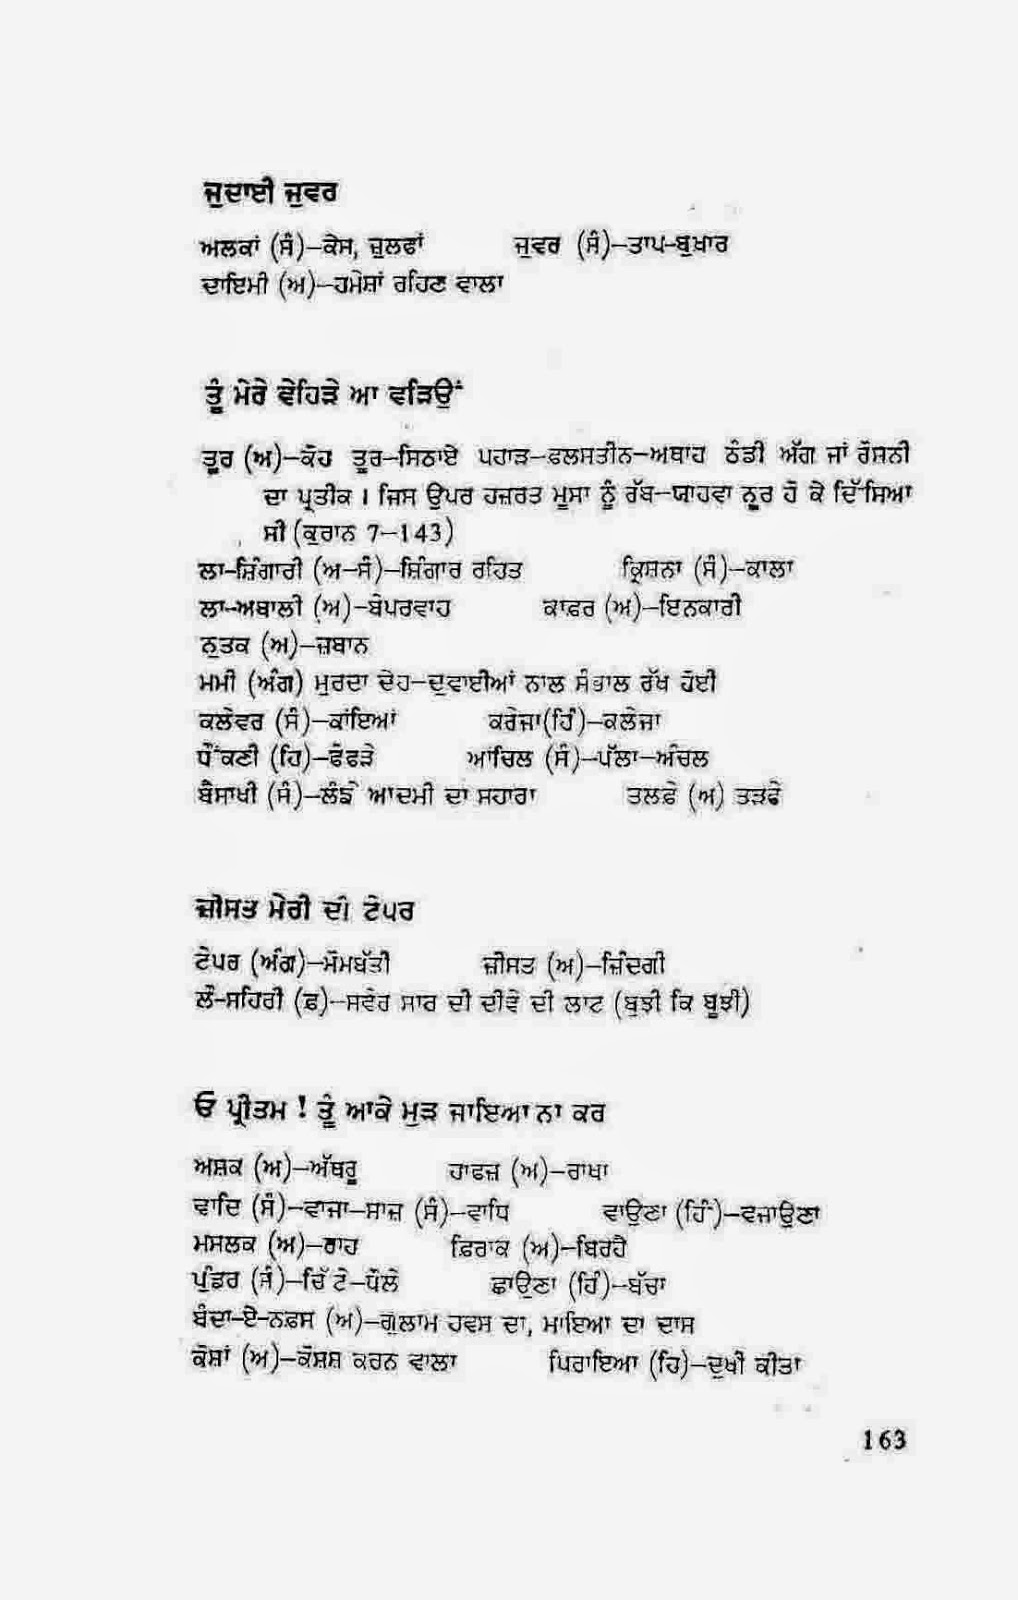 ਜੁਦਾਈ ਜੁਵਰ
ਅਲਕਾਂ (ਸੰ)—ਕੇਸ, ਜ਼ੁਲਫਾਂ ਜੁਵਰ (ਸੰ)—ਤਾਪ-ਬੁਖ਼ਾਰ
ਦਾਇਮੀ (ਅ)—ਹਮੇਸ਼ਾਂ ਰਹਿਣ ਵਾਲਾ
ਤੂੰ ਮੇਰੇ ਵੇਹਿੜੇ ਆ ਵੜਿਉਂ
ਤੂਰ (ਅ)—ਕੋਹ ਤੂਰ—ਸਿਠਾਏ ਪਹਾੜ—ਫ਼ਲਸਤੀਨ—ਅਥਾਹ ਠੰਡੀ ਅੱਗ ਜਾਂ ਰੌਸ਼ਨੀ
ਦਾ ਪ੍ਰਤੀਕ । ਜਿਸ ਉਪਰ ਹਜ਼ਰਤ ਮੂਸਾ ਨੂੰ ਰੱਬ—ਯਾਹਵਾ ਨੂਰ ਹੋ ਕੇ ਦਿੱਸਿਆ
ਸੀ (ਕੁਰਾਨ 7—143)
ਲਾ-ਸ਼ਿੰਗਾਰੀ (ਅ—ਸੰ)—ਸ਼ਿੰਗਾਰ ਰਹਿਤ ਕ੍ਰਿਸ਼ਨਾ (ਸੰ)—ਕਾਲਾ
ਲਾ-ਅਬਾਲੀ (ਅ)—ਬੇਪਰਵਾਹ ਕਾਫ਼ਰ (ਅ)—ਇਨਕਾਰੀ
ਨੁਤਕ (ਅ)—ਜ਼ਬਾਨ
ਮਮੀ (ਅੰਗ) ਮੁਰਦਾ ਦੇਹ—ਦੁਵਾਈਆਂ ਨਾਲ ਸੰਭਾਲ ਰੱਖ ਹੋਈ
ਕਲੇਵਰ (ਸੰ)—ਕਾਂਇਆਂ ਕਰੇਜਾ(ਹਿੰ)—ਕਲੇਜਾ
ਧੌਂਕਣੀ (ਹਿ)—ਫੇਫੜੇ ਆਂਚਿਲ (ਸੰ)—ਪੱਲਾ—ਅੰਚਲ
ਬੈਸਾਖੀ (ਸੰ)—ਲੰਙੇ ਆਦਮੀ ਦਾ ਸਹਾਰਾ ਤਲਫ਼ੇ (ਅ) ਤੜਫੇ
ਜ਼ੀਸਤ ਮੇਰੀ ਦੀ ਟੇਪਰ
ਟੇਪਰ (ਅੰਗ)—ਮੋਮਬੱਤੀ ਜ਼ੀਸਤ (ਅ)—ਜ਼ਿੰਦਗੀ
ਲੌ-ਸਹਿਰੀ (ਫ਼)—ਸਵੇਰ ਸਾਰ ਦੀ ਦੀਵੇ ਦੀ ਲਾਟ (ਬੁਝੀ ਕਿ ਬੂਝੀ)
ਓ ਪ੍ਰੀਤਮ ! ਤੂੰ ਆਕੇ ਮੁੜ ਜਾਇਆ ਨਾ ਕਰ
ਅਸ਼ਕ (ਅ)—ਅੱਥਰੂ ਹਾਫਜ਼ (ਅ)—ਰਾਖਾ
ਵਾਦਿ (ਸੰ)—ਵਾਜਾ—ਸਾਜ਼ (ਸੰ)—ਵਾਧਿ ਵਾਉਣਾ (ਹਿੰ)—ਵਜਾਉਣਾ
ਮਸਲਕ (ਅ)—ਰਾਹ ਫ਼ਿਰਾਕ (ਅ)—ਬਿਰਹੈ
ਪੁੰਡਰ (ਸੰ)—ਚਿੱਟੇ—ਧੌਲੇ ਛਾਉਣਾ (ਹਿੰ)—ਬੱਚਾ
ਬੰਦਾ-ਏ-ਨਫ਼ਸ (ਅ)—ਗੁਲਾਮ ਹਵਸ ਦਾ, ਮਾਇਆ ਦਾ ਦਾਸ
ਕੋਸ਼ਾਂ (ਅ)—ਕੋਸ਼ਸ਼ ਕਰਨ ਵਾਲਾ ਪਿਰਾਇਆ (ਹਿ)—ਦੁਖੀ ਕੀਤਾ
163